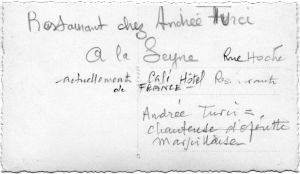 Restaurant chez Andrée Turci
A la Seyne Rue Hoche
actuellement Café Hôtel Restaurant
de FRANCE
Andrée Turci =
chanteuse d'opérette
Marseillaise